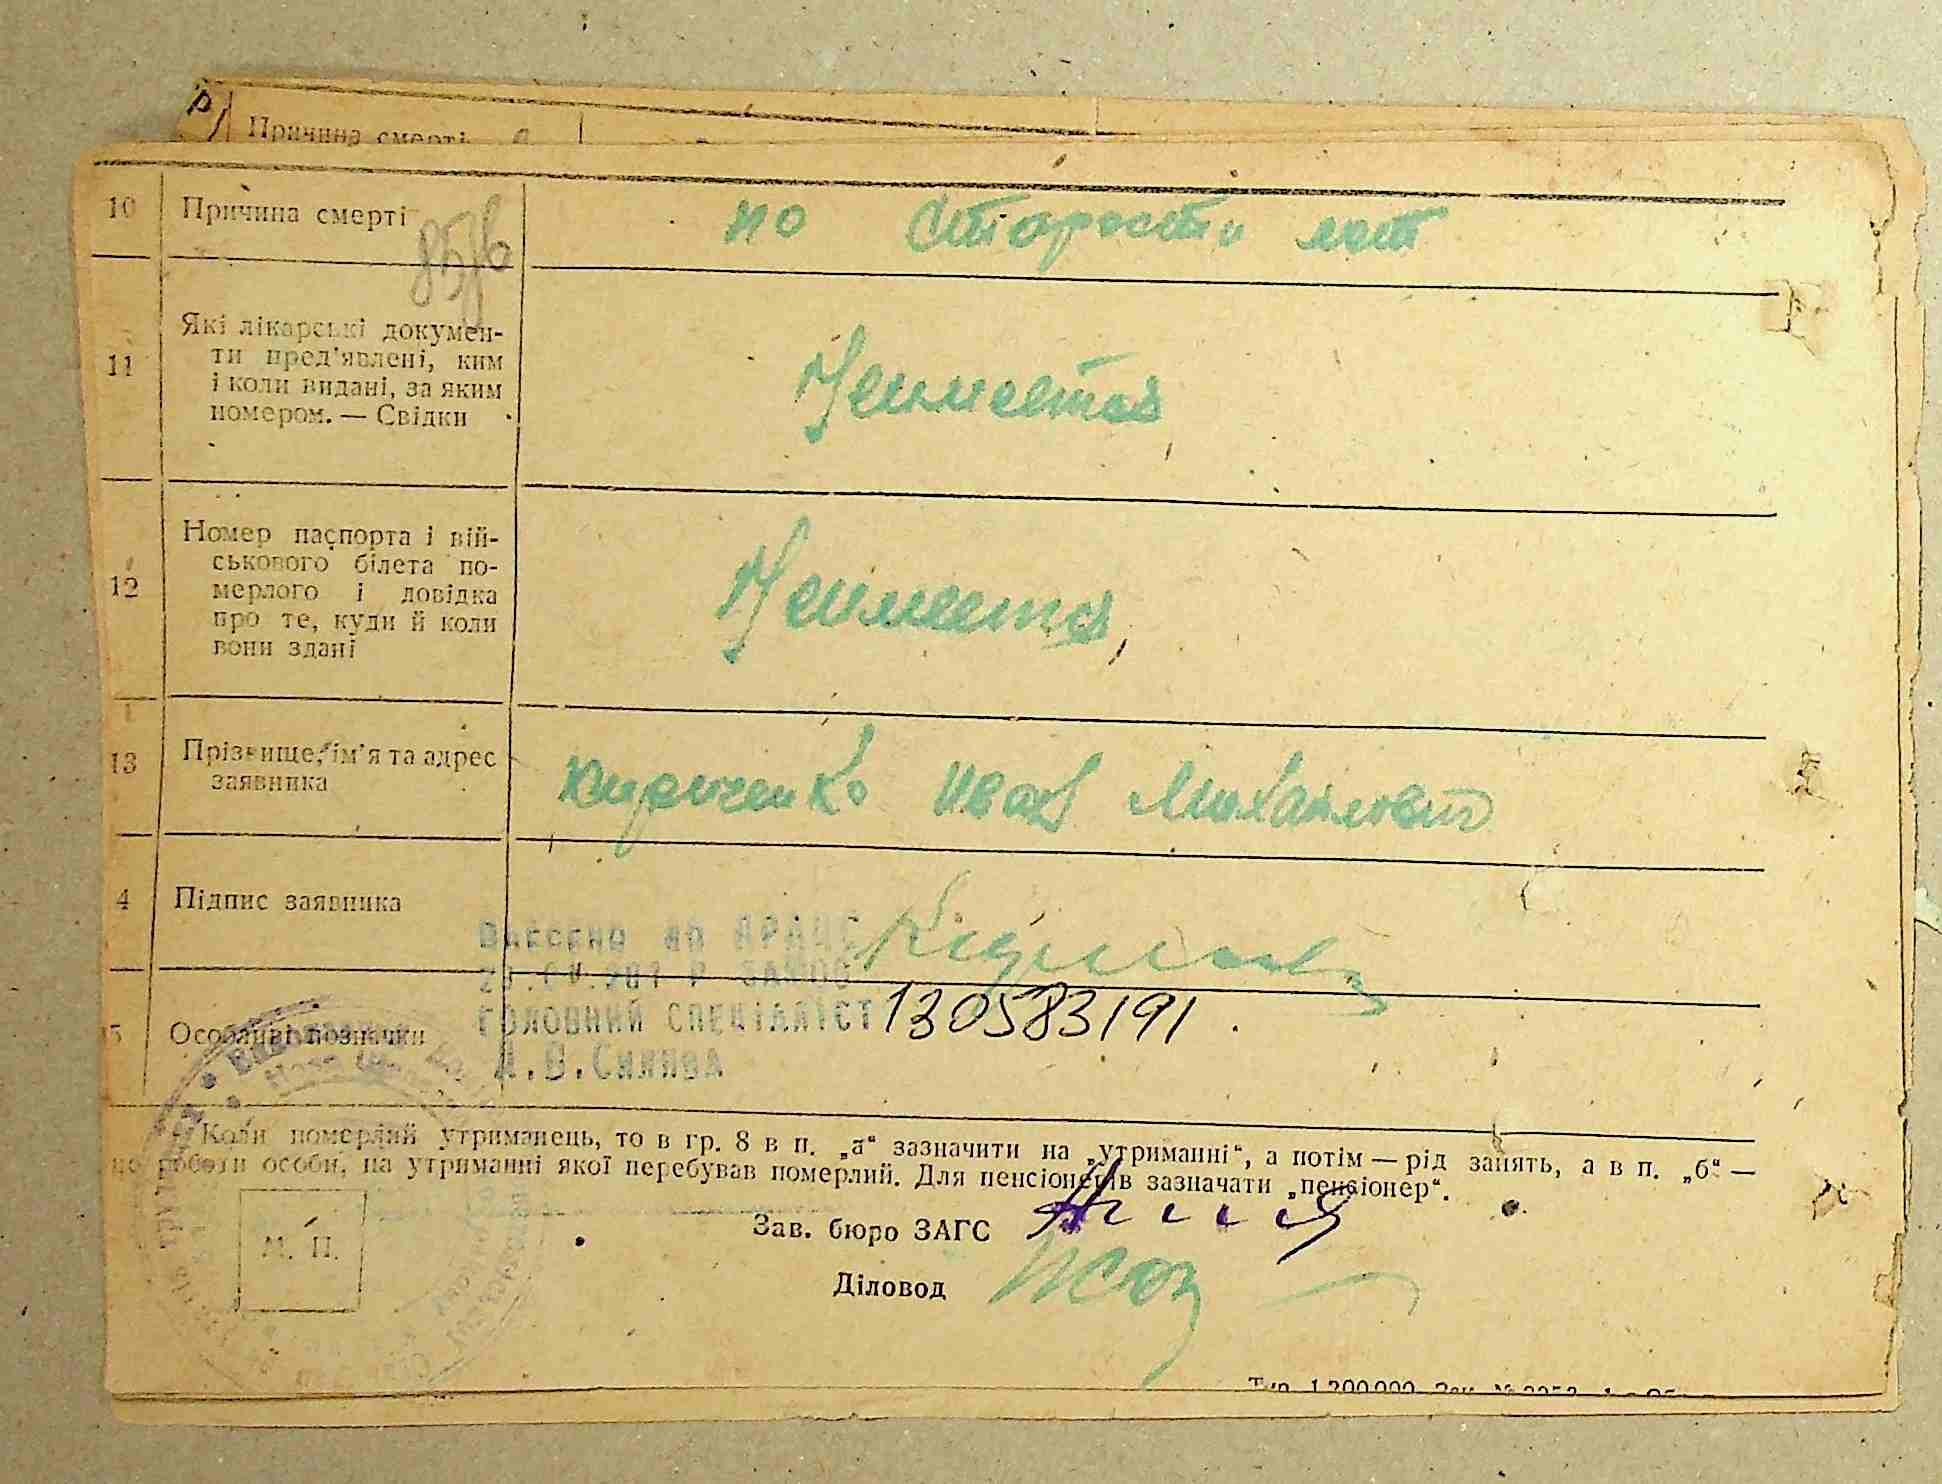 Причина смерті
10 Причина смерті по старости лет
11 Які лікарські докумен-
ти пред'явлені, ким
і коли видані, за яким
номером. — Свідки
Неимеется
12 Номер паспорта і вій-
ськового білета по-
мерлого і довідка
про те, куди й коли
вони здані
Неимеется
13 Прізвище, ім'я та адрес
заявника
Кириченко Иван Михайлович
4 Підпис заявника
ВНЕСЕНО ДО ДРАЦС
ГОЛОВНИЙ СПЕЦІАЛІСТ
5 Особливі позначки 130583191
Коли померлий утриманець, то в гр. 8 в п. „а“ зазначити на „утриманні“, а потім — рід занять, а в п. „б“ —
роботи особи, на утриманні якої перебував померлий. Для пенсіонерів зазначати „пенсіонер“.
М. П.
Зав. бюро ЗАГС
Діловод